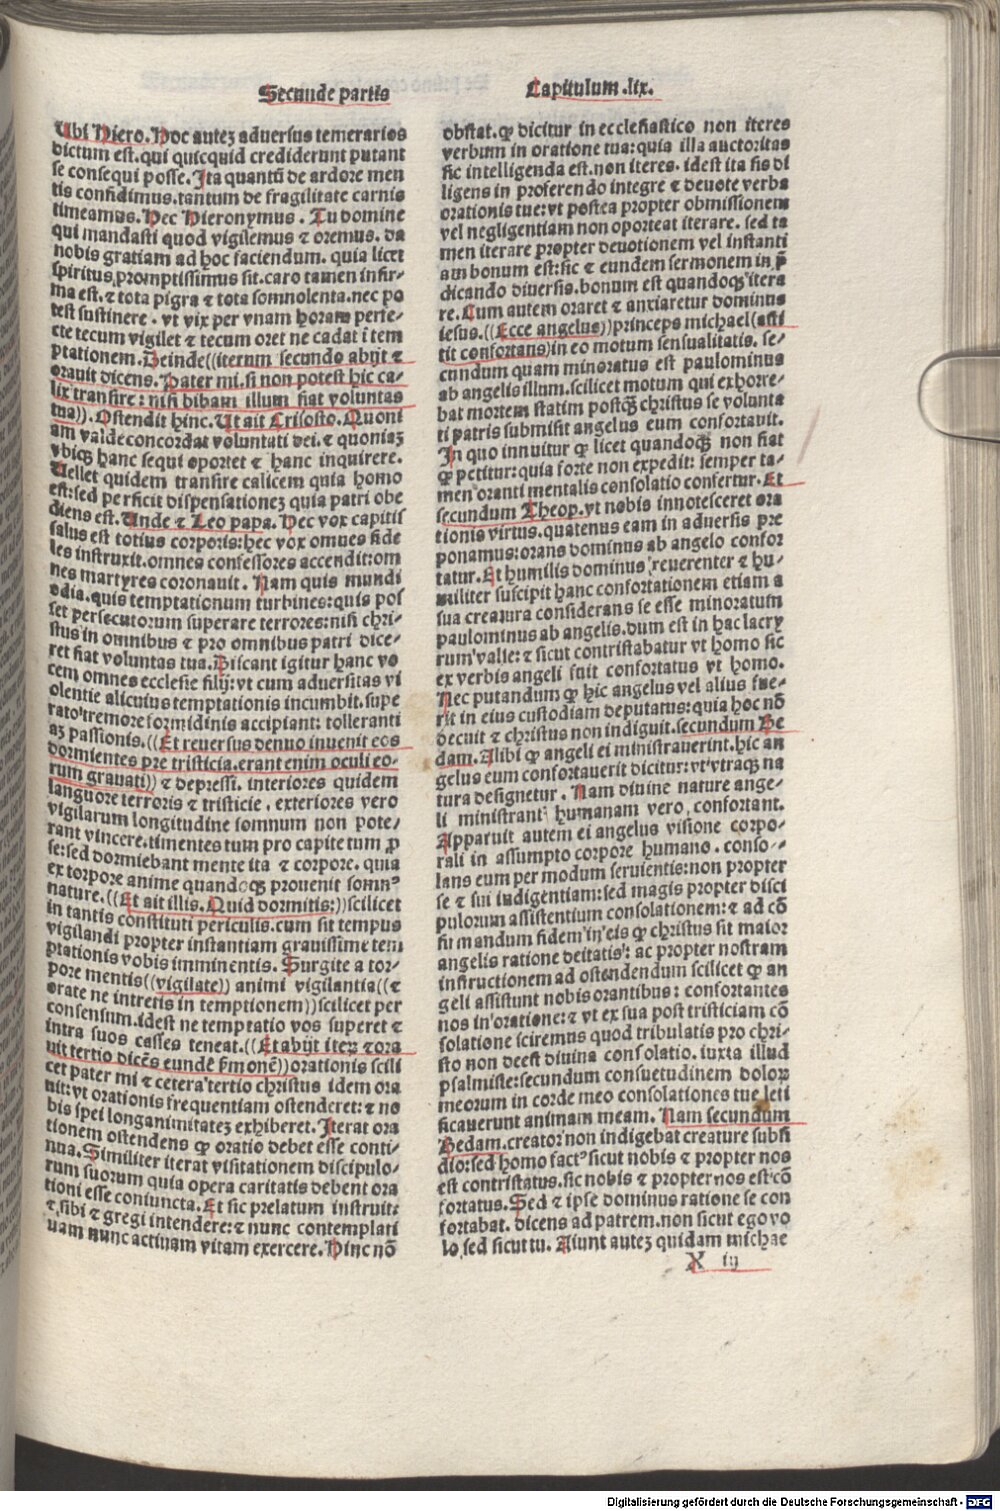 Secunde partis
Capitulum .lix.
Ubi Hiero. Hoc autez aduersus temerarios
dictum est. qui quicquid crediderunt putant
se consequi posse. Ita quantū de ardore men
tis confidimus. tantum de fragilitate carnis
timeamus. Hec Hieronymus . Tu domine
qui mandasti quod vigilemus ⁊ oremus. da
nobis gratiam ad hoc faciendum. quia licet
spiritus promptissimus sit. caro tamen infir-
ma est. ⁊ tota pigra ⁊ tota somnolenta. nec po
test sustinere . vt vix per vnam horam perfe-
cte tecum vigilet ⁊ tecum oret ne cadat ī tem
ptationem. Deinde ((iterum secundo abijt ⁊
orauit dicens. Pater mi. si non potest hic ca-
lix transire : nisi bibam illum fiat voluntas
tua)). Ostendit hinc. Ut ait Crisosto. Quoni
am valde concordat voluntati dei. ⁊ quoniaz
vbiqꝫ hanc sequi oportet ⁊ hanc inquirere.
Uellet quidem transire calicem quia homo
est: sed perficit dispensationez quia patri obe
diens est. Unde ⁊ Leo papa. Hec vox capitis
salus est totius corporis: hec vox omnes fide
les instruxit. omnes confessores accendit: om
nes martyres coronauit. Nam quis mundi
odia. quis temptationum turbines: quis pos
set persecutorum superare terrores: nisi chri-
stus in omnibus ⁊ pro omnibus patri dice-
ret fiat voluntas tua. Discant igitur hanc vo
cem omnes ecclesie filij: vt cum aduersitas vi
olentie alicuius temptationis incumbit. supe
rato tremore formidinis accipiant: tolleranti
az passionis. ((Et reuersus denuo inuenit eos
dormientes pre tristicia. erant enim oculi eo-
rum grauati)) ⁊ depressi. interiores quidem
languore terroris ⁊ tristicie . exteriores vero
vigilarum longitudine somnum non pote-
rant vincere. timentes tum pro capite tum ꝓ
se: sed dormiebant mente ita ⁊ corpore. quia
ex torpore anime quandoqꝫ prouenit somnꝰ
nature. ((Et ait illis. Quid dormitis:)) scilicet
in tantis constituti periculis. cum sit tempus
vigilandi propter instantiam grauissime tem
ptationis vobis imminentis. Surgite a tor-
pore mentis ((vigilate)) animi vigilantia ((⁊
orate ne intretis in temptionem)) scilicet per
consensum. idest ne temptatio vos superet ⁊
intra suos casses teneat. ((Et abijt iteꝝ ⁊ ora
uit tertio dicēs eundē ẜmonē)) orationis scili
cet pater mi ⁊ cetera tertio christus idem ora
uit: vt orationis frequentiam ostenderet: ⁊ no
bis spei longanimitatez exhiberet. Iterat ora
tionem ostendens ꝙ oratio debet esse conti-
nua. Similiter iterat visitationem discipulo-
rum suorum quia opera caritatis debent ora
tioni esse coniuncta. Et sic prelatum instruit:
⁊ sibi ⁊ gregi intendere: ⁊ nunc contemplati
uam nunc actiuam vitam exercere. Hinc nō
obstat. ꝙ dicitur in ecclesiastico non iteres
verbum in oratione tua: quia illa auctoritas
sic intelligenda est. non iteres. idest ita sis di
ligens in proferendo integre ⁊ deuote verba
orationis tue: vt postea propter obmissionem
vel negligentiam non oporteat iterare. sed ta
men iterare propter deuotionem vel instanti
am bonum est: sic ⁊ eundem sermonem in p̄
dicando diuersis. bonum est quandoqꝫ itera
re. Cum autem oraret ⁊ anxiaretur dominus
iesus. ((Ecce angelus)) princeps michael (asti
tit confortans) in eo motum sensualitatis. se-
cundum quam minoratus est paulominus
ab angelis illum. scilicet motum qui exhorre-
bat mortem statim postqꝫ christus se volunta
ti patris submisit angelus eum confortauit.
In quo innuitur ꝙ licet quandoqꝫ non fiat
ꝙ petitur: quia forte non expedit: semper ta-
men oranti mentalis consolatio confertur. Et
secundum Theop. vt nobis innotesceret ora
tionis virtus. quatenus eam in aduersis pre
ponamus: orans dominus ab angelo confor
tatur. Et humilis dominus reuerenter ⁊ hu-
militer suscipit hanc confortationem etiam a
sua creatura considerans se esse minoratum
paulominus ab angelis. dum est in hac lacry
rum valle: ⁊ sicut contristabatur vt homo sic
ex verbis angeli fuit confortatus vt homo.
Nec putandum ꝙ hic angelus vel alius fue-
rit in eius custodiam deputatus: quia hoc nō
decuit ⁊ christus non indiguit. secundum Be
dam. Alibi ꝙ angeli ei ministrauerint. hic an
gelus eum confortauerit dicitur: vt vtraqꝫ na
tura designetur . Nam diuine nature ange-
li ministrant humanam vero confortant.
Apparuit autem ei angelus visione corpo-
rali in assumpto corpore humano . conso-
lans eum per modum seruientis: non propter
se ⁊ sui indigentiam: sed magis propter disci
pulorum assistentium consolationem: ⁊ ad cō
firmandum fidem in eis ꝙ christus sit maior
angelis ratione deitatis: ac propter nostram
instructionem ad ostendendum scilicet ꝙ an
geli assistunt nobis orantibus: confortantes
nos in oratione: ⁊ vt ex sua post tristiciam cō
solatione sciremus quod tribulatis pro chri-
sto non deest diuina consolatio. iuxta illud
psalmiste: secundum consuetudinem doloꝝ
meorum in corde meo consolationes tue leti
ficauerunt animam meam. Nam secundum
Bedam. creator non indigebat creature subsi
dio: sed homo factꝰ sicut nobis ⁊ propter nos
est contristatus. sic nobis ⁊ propter nos est cō
fortatus. Sed ⁊ ipse dominus ratione se con
fortabat. dicens ad patrem. non sicut ego vo
lo sed sicut tu. Aiunt autez quidam michae
X iij
Digitalisierung gefördert durch die Deutsche Forschungsgemeinschaft - DFG